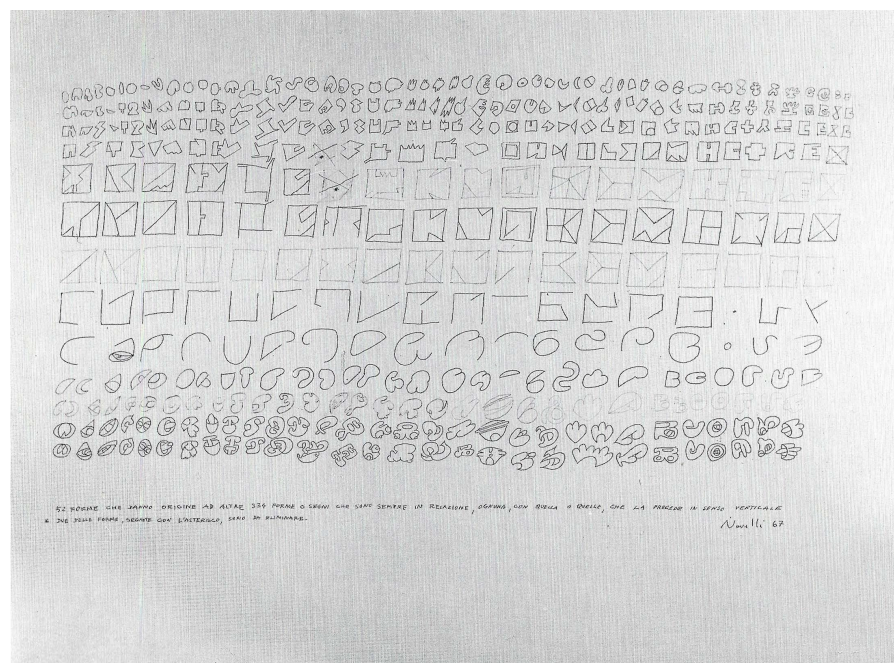 52 FORME CHE DANNO ORIGINE AD ALTRE 534 FORME O SEGNI CHE SONO SEMPRE IN RELAZIONE, OGNUNA, CON QUELLA O QUELLO, CHE LA PRECEDE IN SENSO VERTICALE
* DUE DELLE FORME, SEGNATE CON L'ASTERISCO, SONO DA ELIMINARE.
Novelli 67